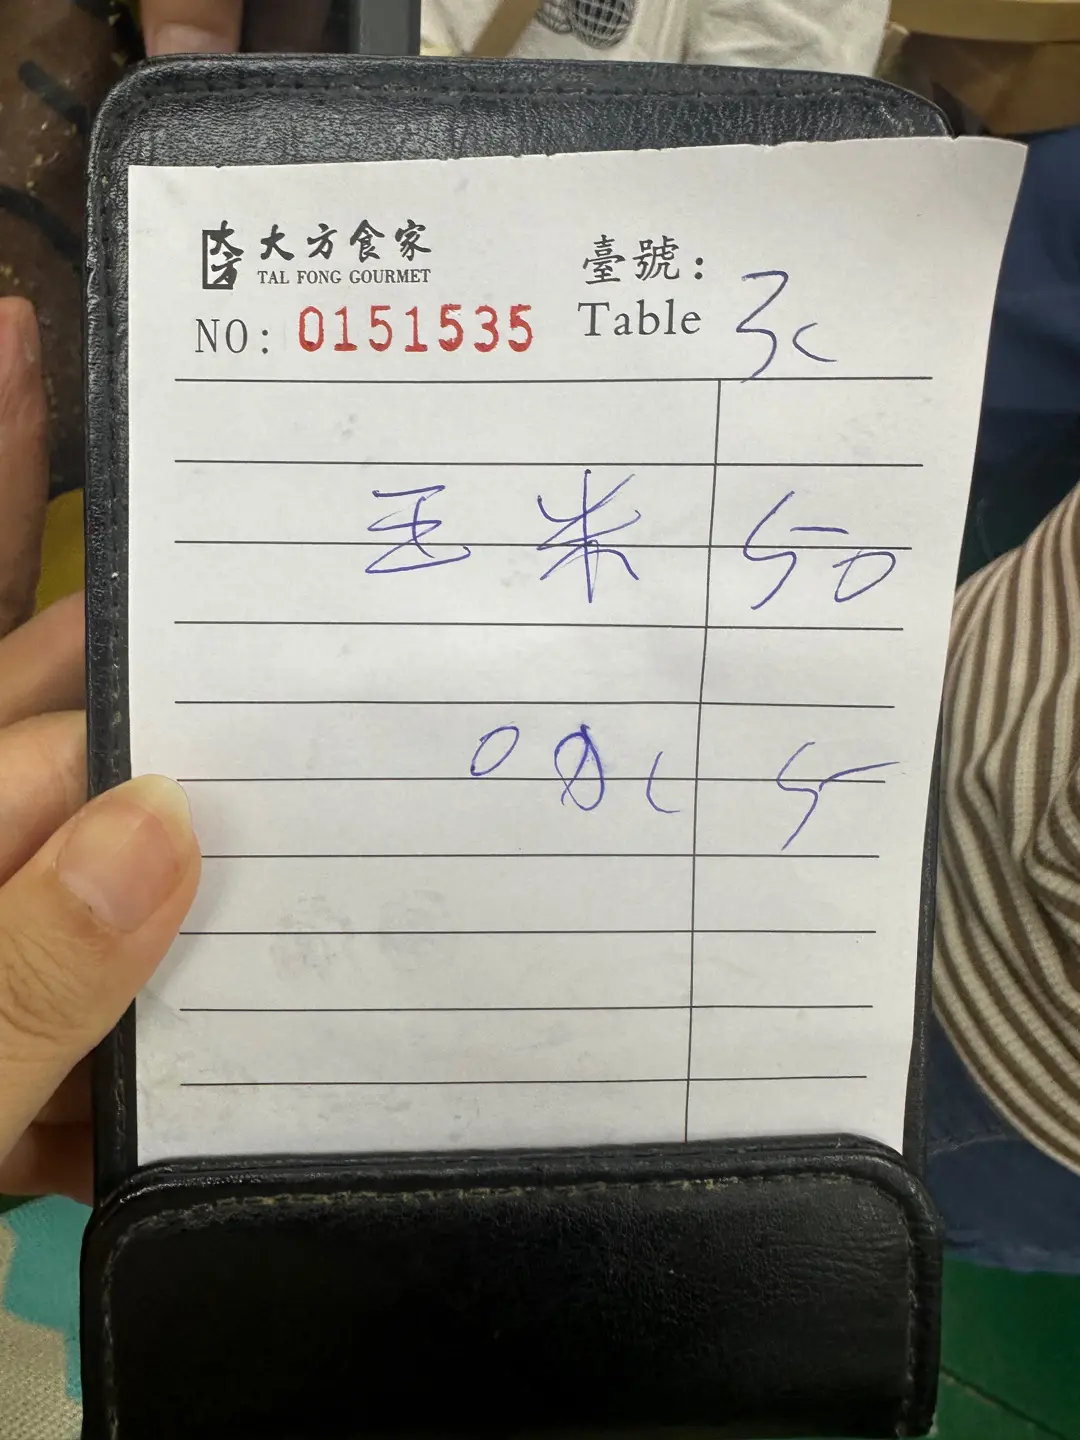 大方 大方食家
TAI FONG GOURMET
臺號:
Table 3c
NO: 0151535
玉米 50
5